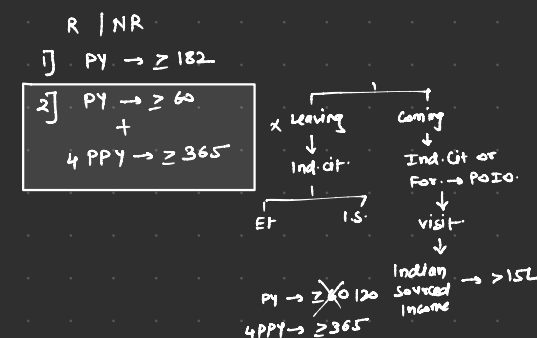 R | NR
1] PY → ≥ 182
2] PY → ≥ 60
+
4 PPY → ≥ 365
x Leaving
Ind. cit.
Et
I.S.
Coming
Ind. Cit or
For. → POIO.
visit
Indian → > 15L
sourced
Income
PY → ≥ 60 120
4PPY → ≥ 365